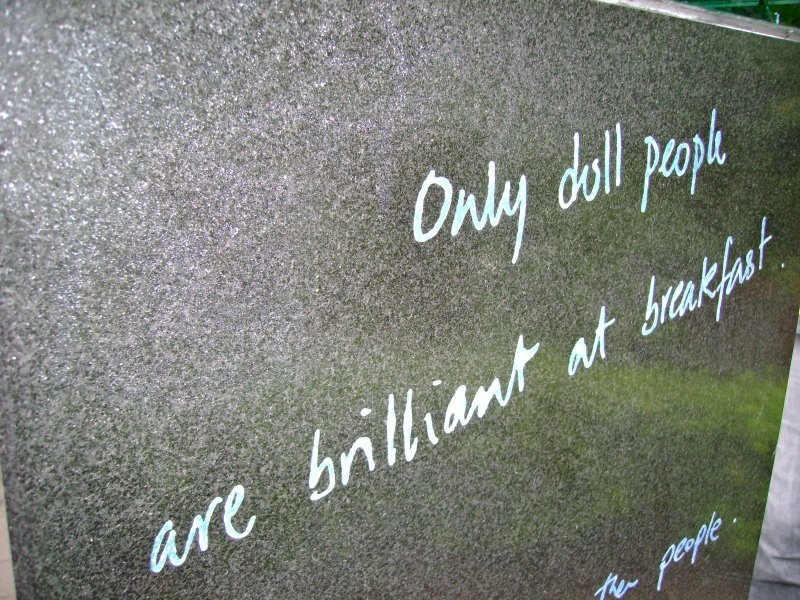 Only doll people
are brilliant at breakfast.
people.